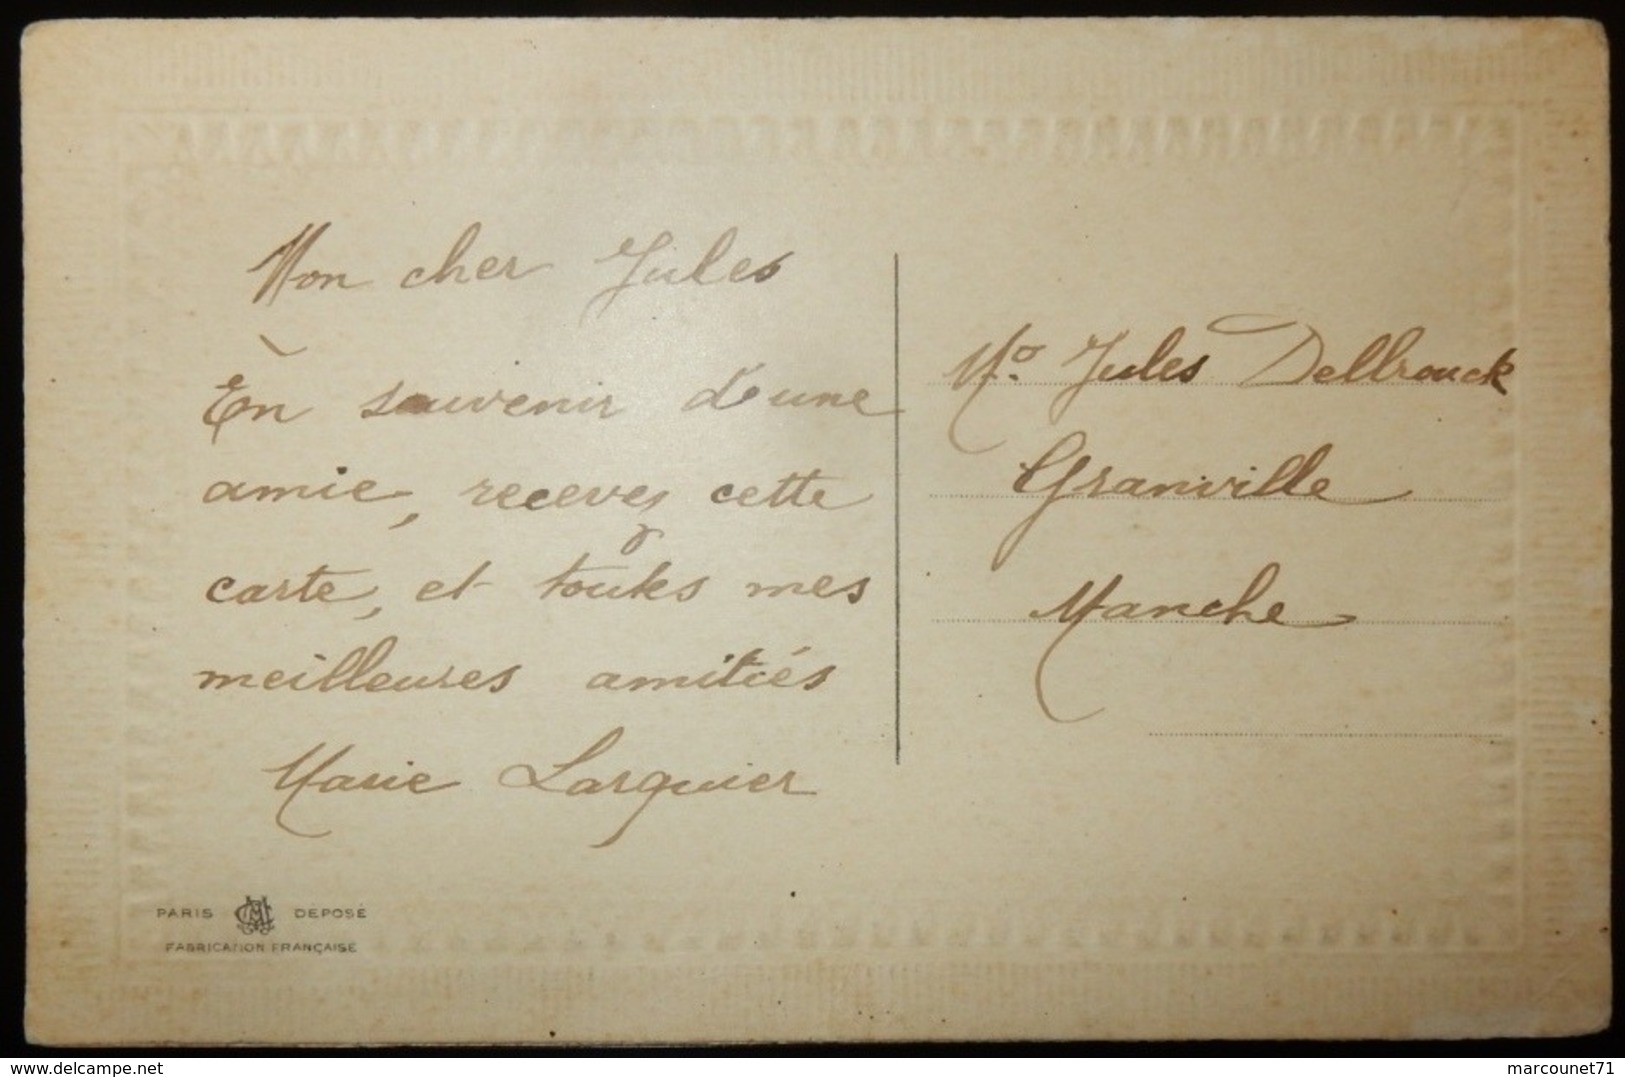 Mon cher Jules
En souvenir d'une
amie, recevez cette
carte, et toutes mes
meilleures amitiés
Marie Larguier
Mr. Jules Dellrouck
Granville
Manche
PARIS DÉPOSÉ
FABRICATION FRANÇAISE
delcampe.net
marcounet71